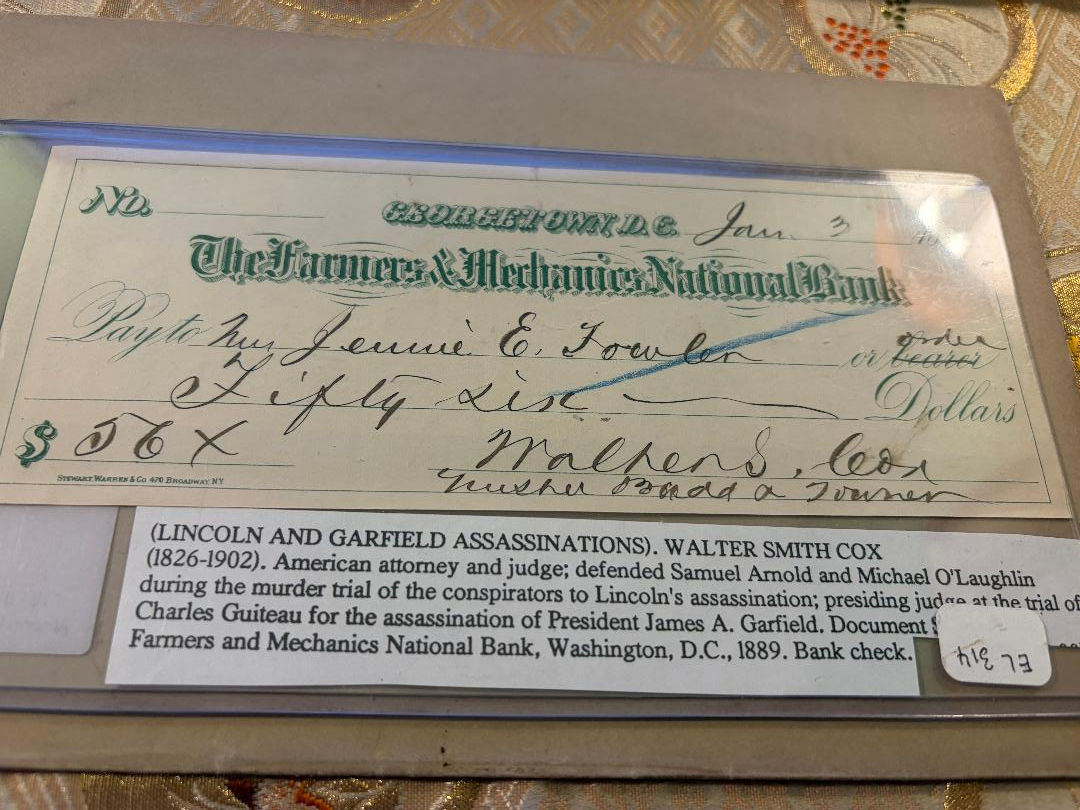 No. GEORGETOWN D.C. Jan. 3
The Farmers & Mechanics National Bank
order
Pay to Mrs Jennie E. Fowler or bearer
Fifty six Dollars
$ 56 X Walter S. Cox
STEWART WARREN & CO 470 BROADWAY, NY
(LINCOLN AND GARFIELD ASSASSINATIONS). WALTER SMITH COX
(1826-1902). American attorney and judge; defended Samuel Arnold and Michael O'Laughlin
during the murder trial of the conspirators to Lincoln's assassination; presiding judge at the trial of
Charles Guiteau for the assassination of President James A. Garfield. Document
Farmers and Mechanics National Bank, Washington, D.C., 1889. Bank check.
EL 314